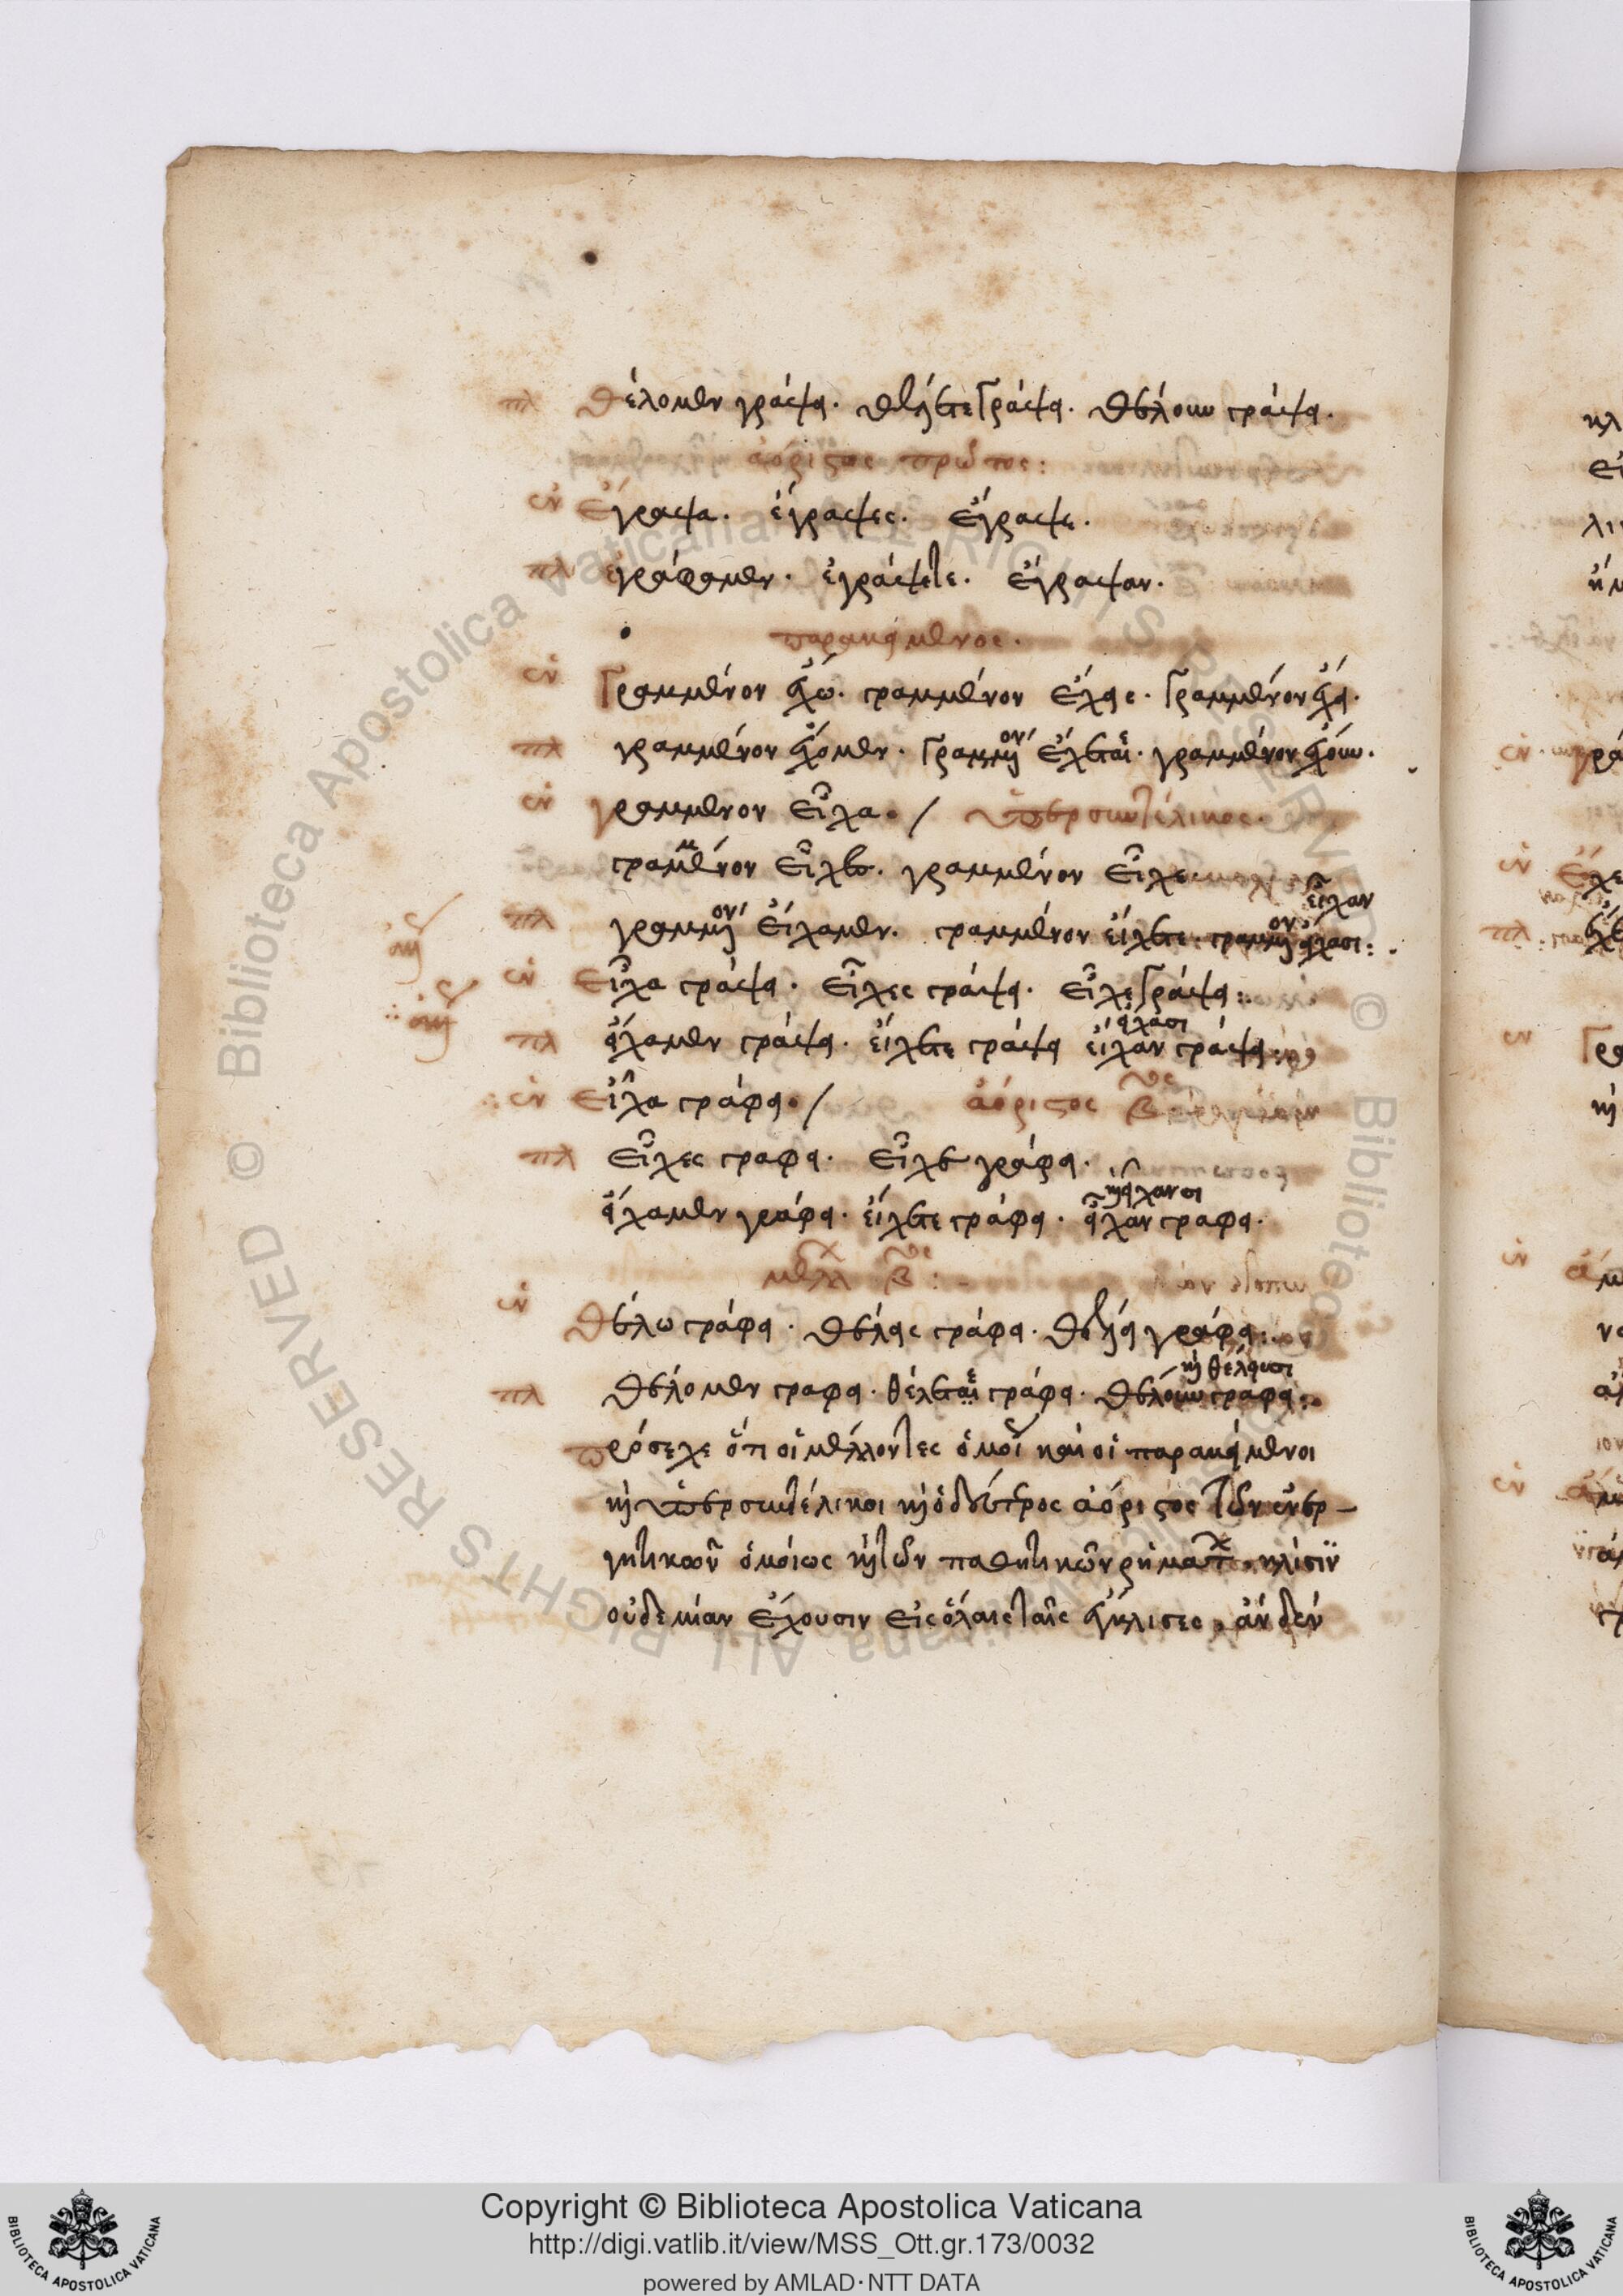 πλ θέλομεν γράψει. θελήετε γράψει. θέλουν γράψει.
ἀόριστος πρῶτος:
ἑν ἔγραψα. ἔγραψες. ἔγραψε.
πλ ἐγράψαμεν. ἐγράψετε. ἔγραψαν.
παρακείμενος.
ἑν γραμμένον ἔχω. γραμμένον ἔχεις. γραμμένον ἔχει.
πλ γραμμένον ἔχομεν. γραμμένον ἔχεται. γραμμένον ἔχουν.
ἑν γραμμενον εἶχα. / ὑπερσυντέλικος.
γραμμένον εἶχες. γραμμένον εἶχε
εἶχαν
πλ γραμμένον εἴχαμεν. γραμμένον εἴχετε. γραμμένον εἴχασι:
ἑν εἶχα γράψει. εἶχες γράψει. εἶχε γράψει:
εἴχασι
πλ εἴχαμεν γράψει. εἴχετε γράψει εἶχαν γράψει:
ἑν εἶχα γράφει. / ἀόριστος βος
πλ εἶχες γραφει. εἶχε γράφει.
εἴχαμεν γράφει. εἴχετε γράφει. εἶχαν γραφει.
μελλ βος:
ἑν θέλω γράφει. θέλεις γράφει. θελήει γράφει:
καὶ θέλουσι
πλ θέλομεν γραφει. θέλεται γράφει. θέλουν γραφει:
πρόσεχε ὅτι οἱ μέλλοντες ὁμοῦ καὶ οἱ παρακείμενοι
καὶ ὑπερσυντέλικοι καὶ ὁ δεύτερος ἀόριστος τῶν ἐνερ-
γητικῶν ὁμοίως καὶ τῶν παθητικῶν ῥημάτων, κλίσιν
οὐδεμίαν ἔχουσιν εἰς ὅλαις ταῖς ἔγκλισες, ἀν δεν
Copyright © Biblioteca Apostolica Vaticana
http://digi.vatlib.it/view/MSS_Ott.gr.173/0032
powered by AMLAD·NTT DATA